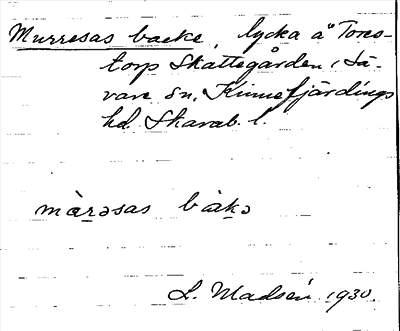 Murresas backe, lycka å Tores-
torp Skattegården, Sä-
vare sn. Kinnefjärdings
hd. Skarab. l.
màrəsas bàkə
L. Madsén 1930.